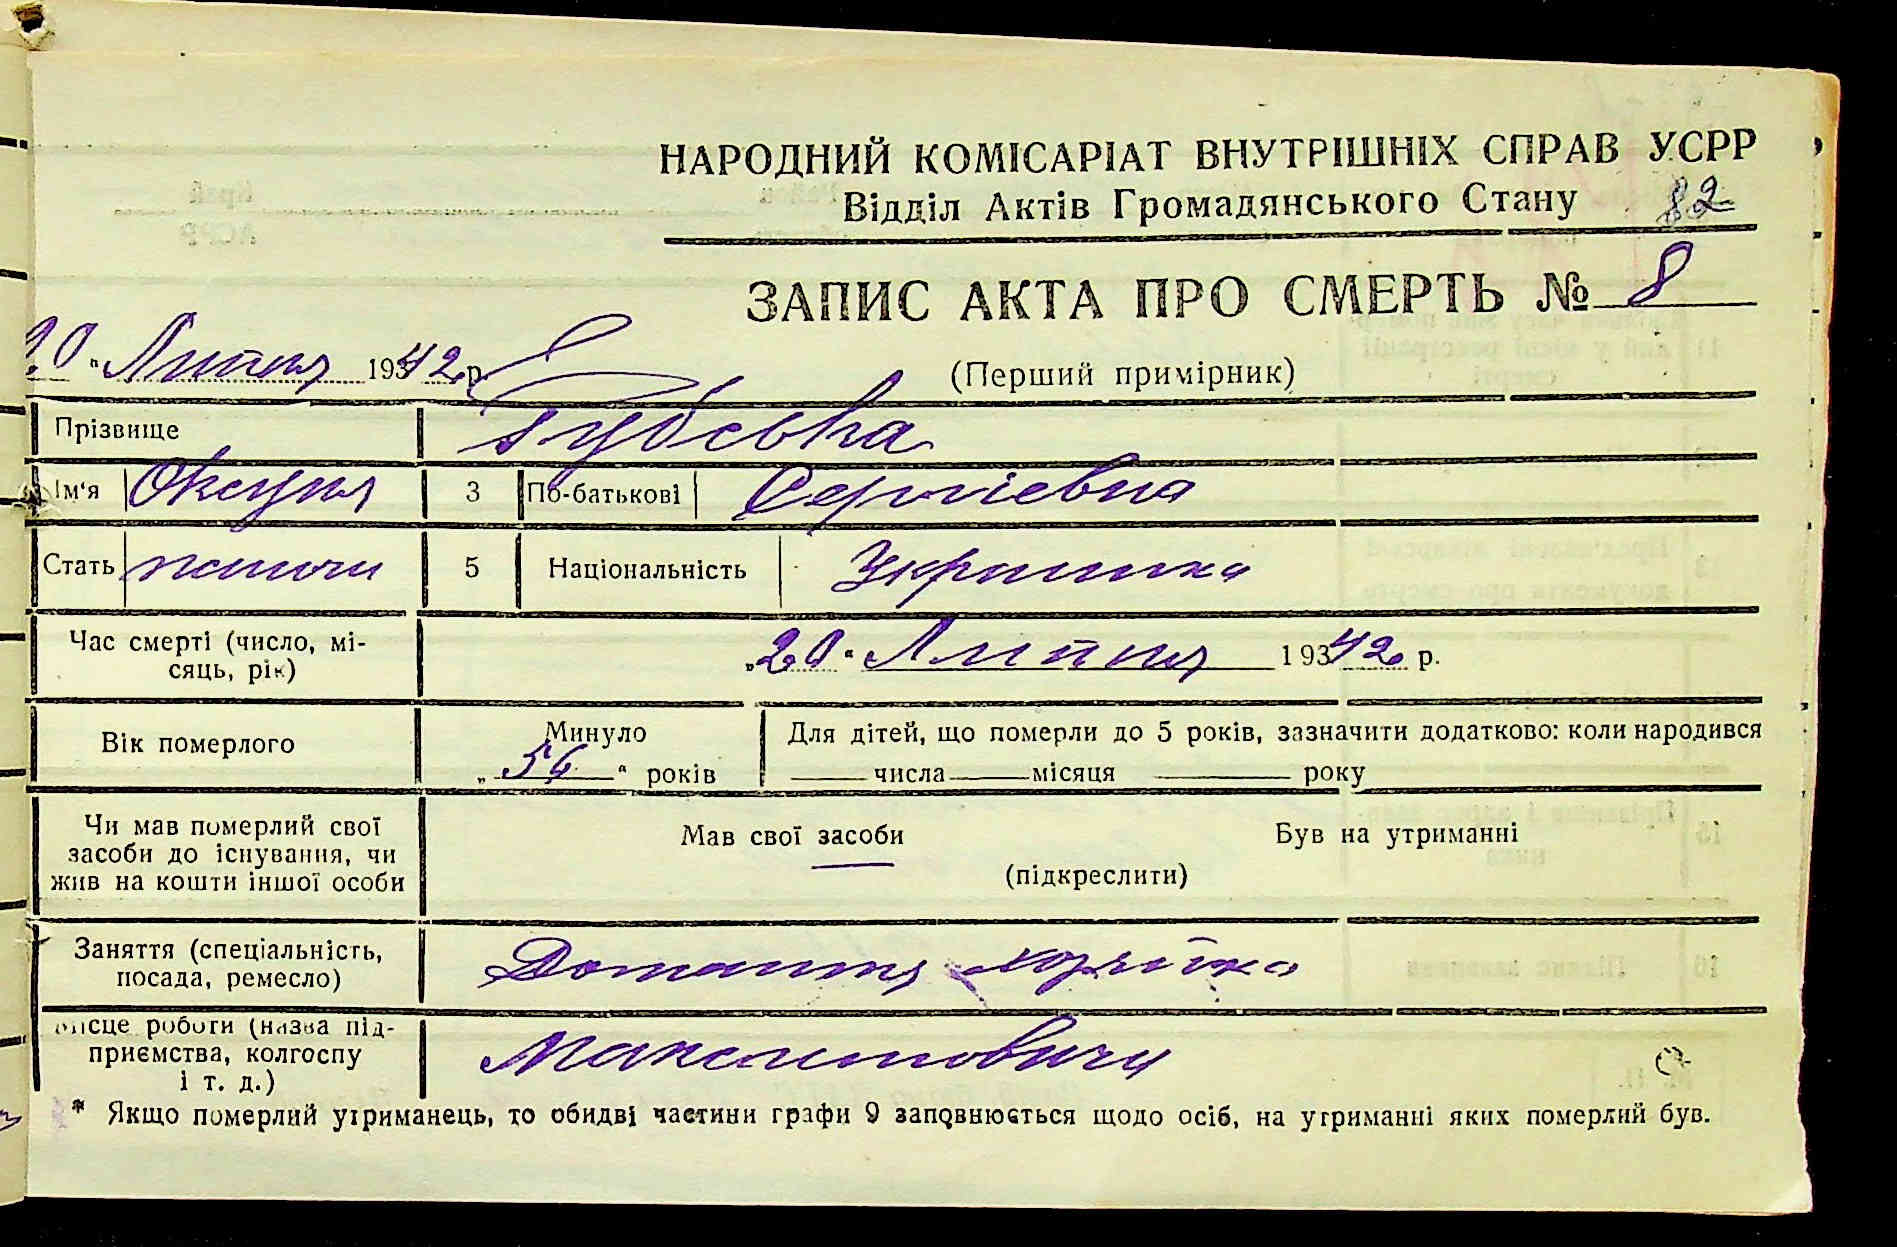 НАРОДНИЙ КОМІСАРІАТ ВНУТРІШНІХ СПРАВ УСРР
Відділ Актів Громадянського Стану 82
ЗАПИС АКТА ПРО СМЕРТЬ № 8
20 " Липня 1942 р.
(Перший примірник)
Прізвище
Ім'я Оксана 3 По-батькові Сергієвна
Стать жіноча 5 Національність Українка
Час смерті (число, мі-
сяць, рік)
„20" Липня 1942 р.
Вік померлого
Минуло
„ 56 " років
Для дітей, що померли до 5 років, зазначити додатково: коли народився
числа місяця року
Чи мав померлий свої
засоби до існування, чи
жив на кошти іншої особи
Мав свої засоби Був на утриманні
(підкреслити)
Заняття (спеціальність,
посада, ремесло)
Домашня хозяйка
Місце роботи (назва під-
приємства, колгоспу
і т. д.)
Максимовичи
* Якщо померлий утриманець, то обидві частини графи 9 заповнюється щодо осіб, на утриманні яких померлий був.